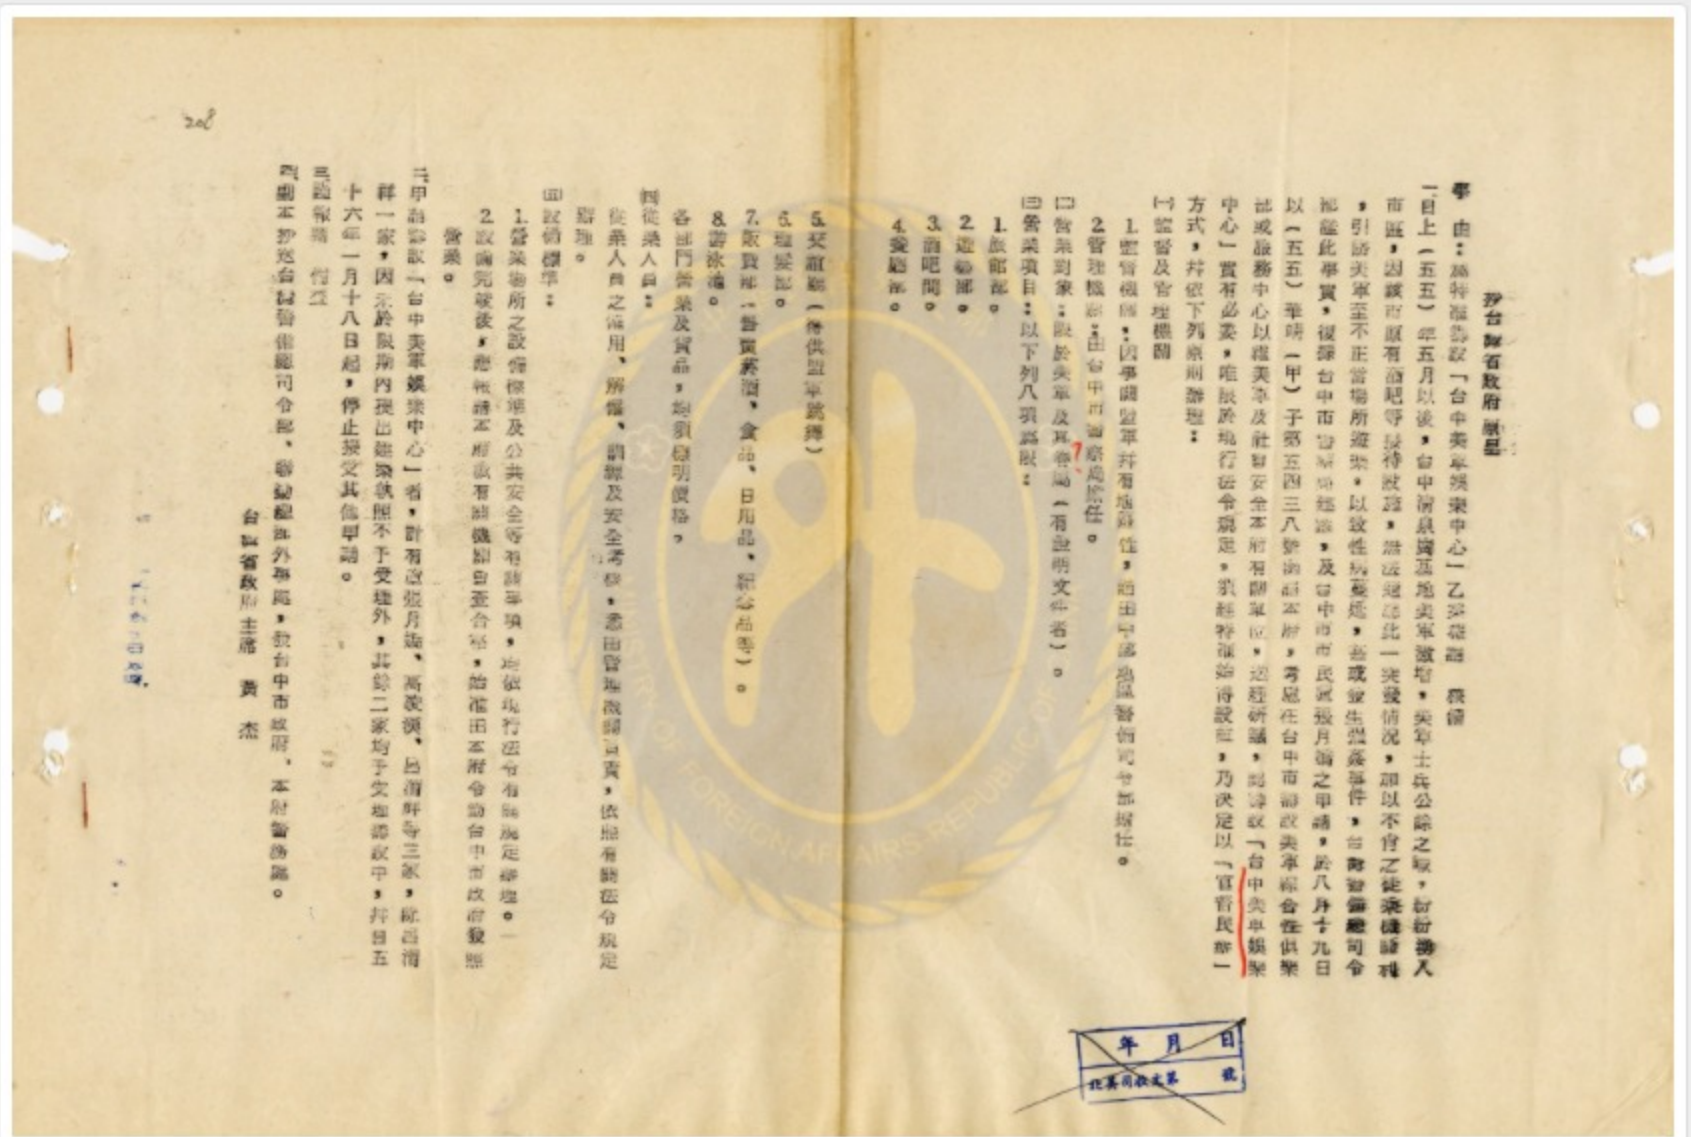 抄台灣省政府 原呈
事 由：為特准籌設「台中美軍娛樂中心」乙案
一、自上（五五）年五月以後，台中清泉崗基地美軍激增，美軍士兵公餘之暇，紛紛湧入
市區，因該市原有酒吧等接待設施，無法適應此一突發情況，加以不肖之徒
，引誘美軍至不正當場所遊樂，以致性病蔓延，甚或並生強姦事件，台灣警備總司令
部鑑此事實，復據台中市警察局 及台中市市民 張月 之申請，於八月十九日
以（五五）華明（甲）子第五四三八號函請本府，考慮在台中市籌設美軍綜合性俱樂
部或服務中心以維美軍及社會安全本府有關單位，迭經研議，認籌設「台中美軍娛樂
中心」實有必要，唯限於現行法令規定，須經特准始得設立，乃決定以「官督民辦」
方式，并依下列原則辦理：
㈠監督及管理機關
1.監督機關：因事關盟軍并有地區性，請由中部地區警備司令部擔任。
2.管理機關：由台中市警察局擔任。
㈡營業對象：限於美軍及其眷屬（有證明文件者）。
㈢營業項目：以下列八項為限：
1.旅館部。
2.遊藝部。
3.酒吧間。
4.餐廳部。
5.交誼廳（得供盟軍跳舞）
6.理髮部。
7.販賣部（售賣菸酒、食品、日用品、紀念品等）。
8.游泳池。
各部門營業及貨品，均須標明價格。
㈣從業人員：
從業人員之僱用、解僱、訓練及安全考核，悉由管理機關負責，依照有關法令規定
辦理。
㈤設備標準：
1.營業場所之設備標準及公共安全等有關事項，均依現行法令有關規定辦理。
2.設備完竣後，應報請本府派有關機關會查合格，始准由本府令飭台中市政府發照
營業。
二、申請籌設「台中美軍娛樂中心」者，計有 張月 、高 、呂清 等三家，除呂清
祥一家，因未於限期內提出建築執照不予受理外，其餘二家均予受理籌設中，并自五
十六年一月十八日起，停止接受其他申請。
三、謹報請 核
四、副本抄送台灣警備總司令部、聯勤總部外事處，發台中市政府、本府警務處。
台灣省政府主席 黃 杰
208
年 月 日
北美司收文第 號
MINISTRY OF FOREIGN AFFAIRS REPUBLIC OF